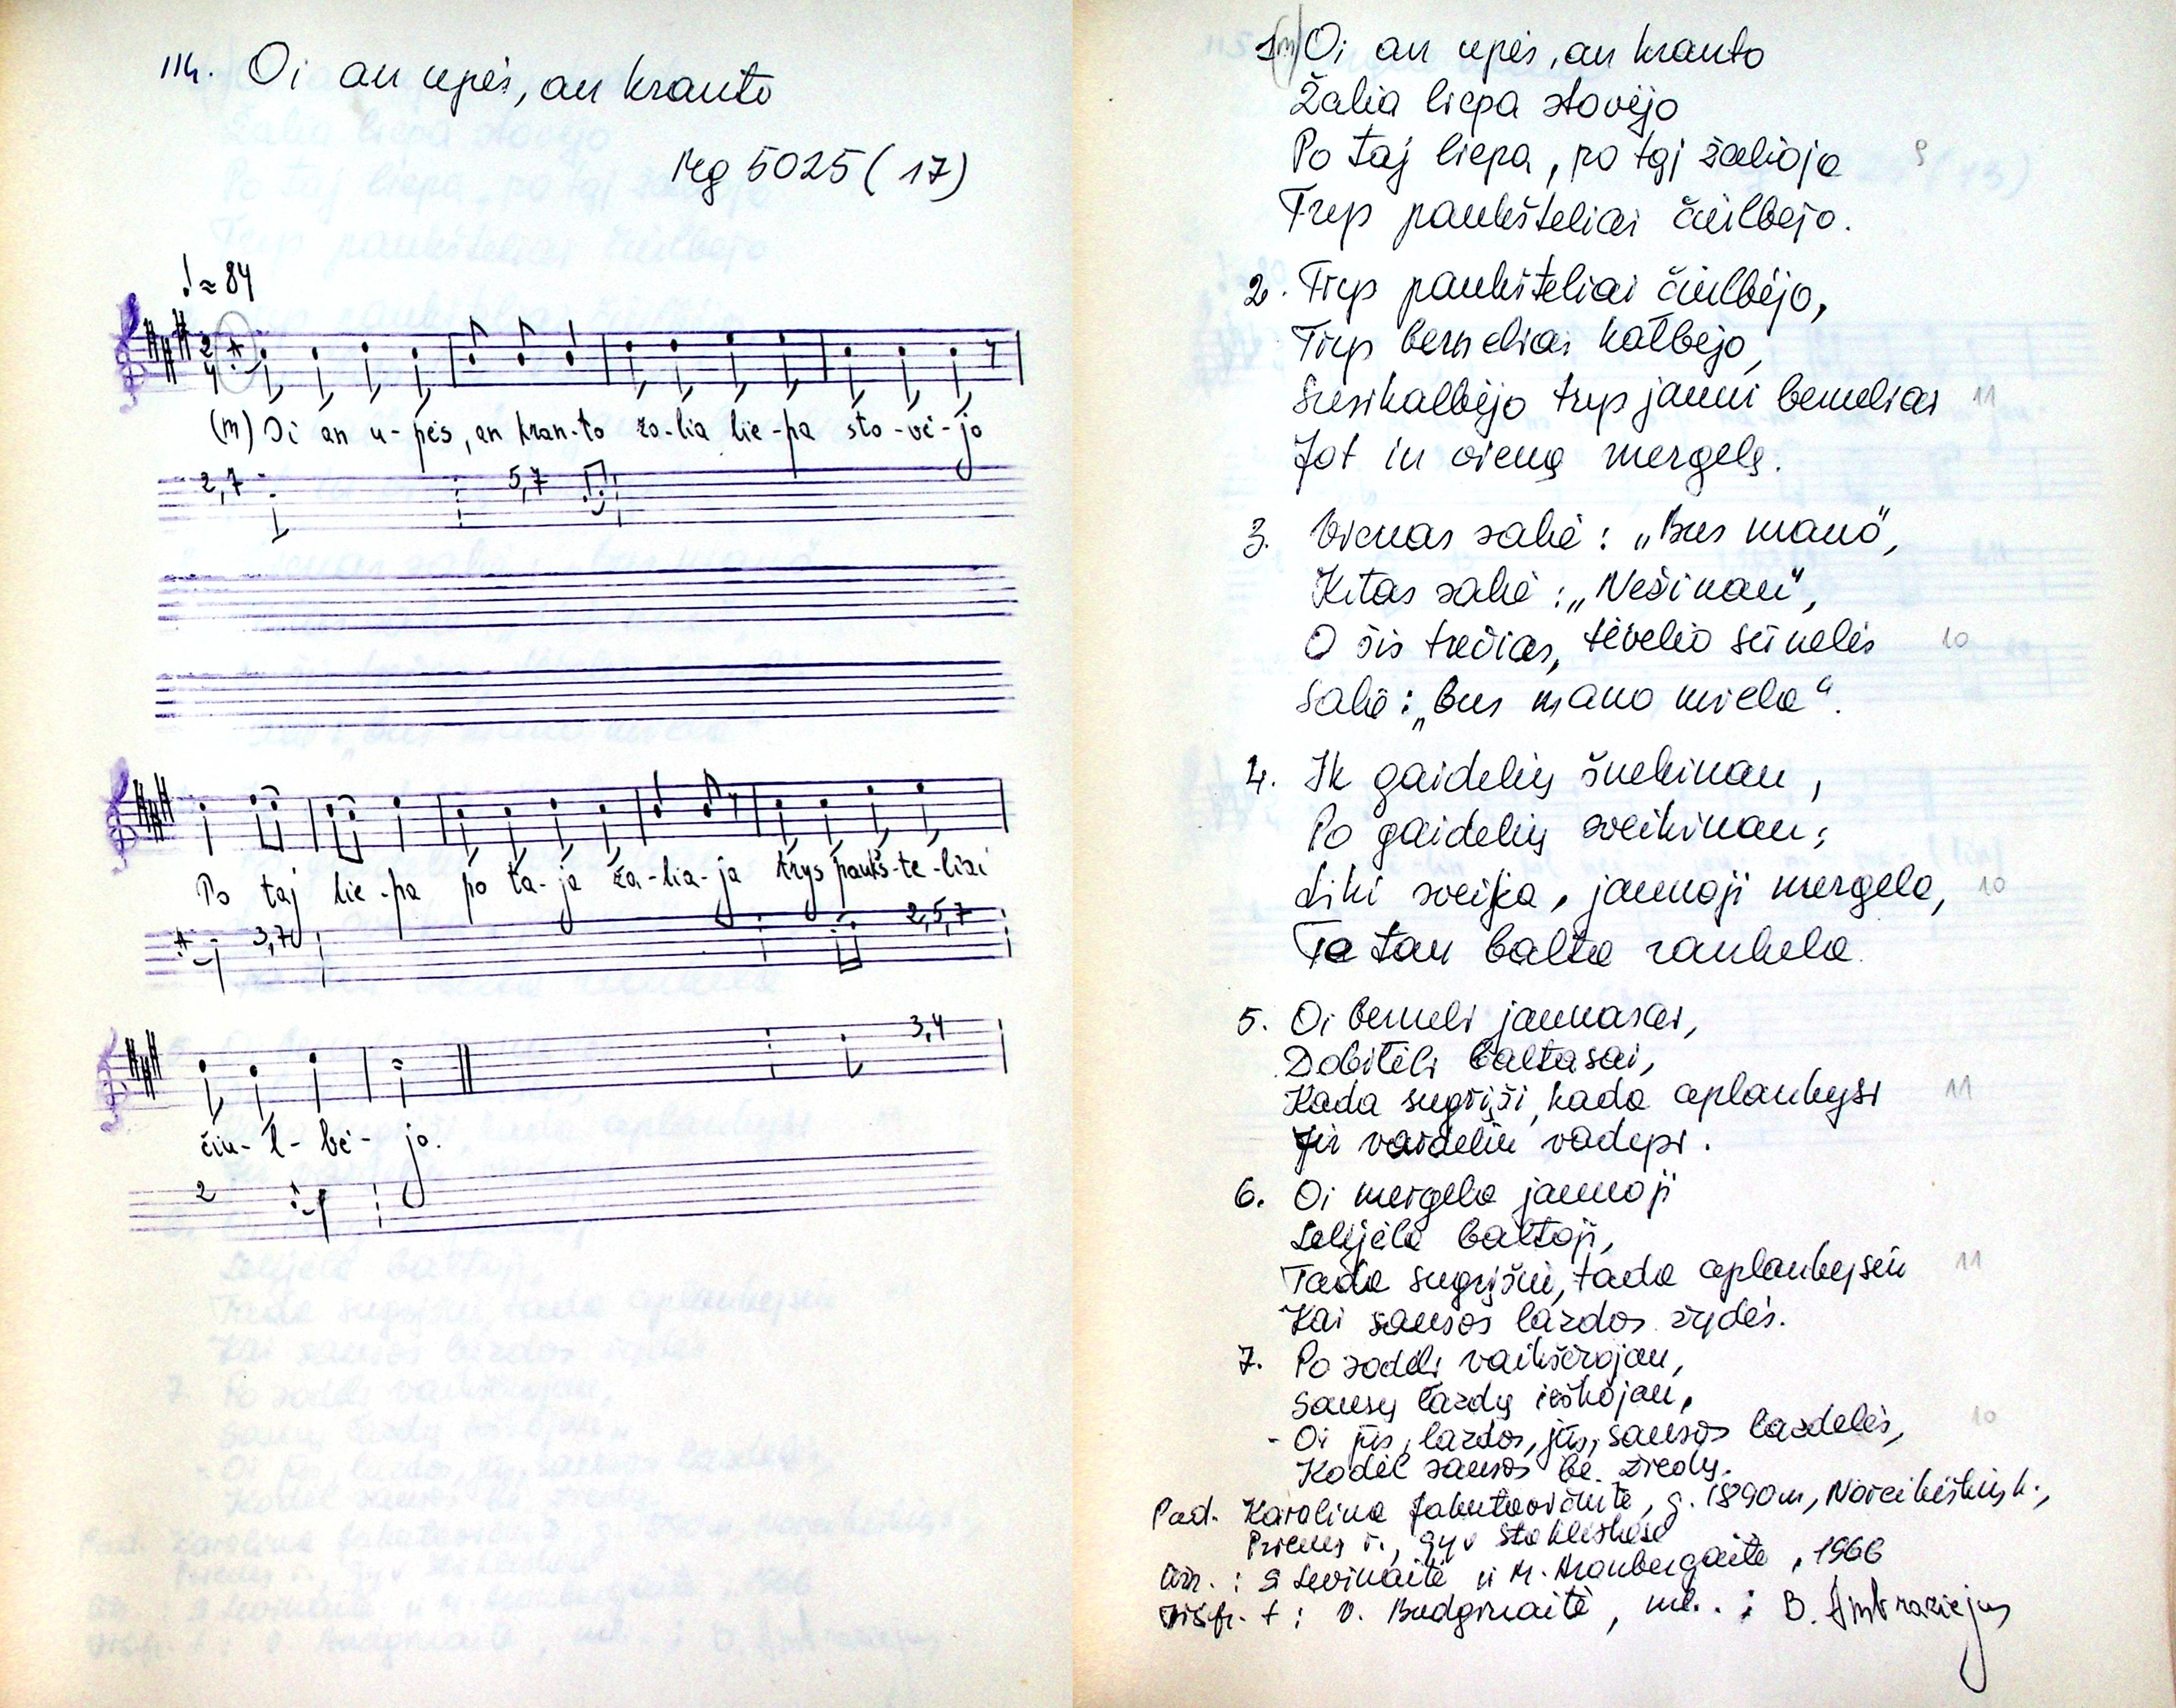 114. Oi an upės, an kranto
Mg 5025 (17)
≈ 84
2
4
(m) Oi an u-pės, an kran-to ža-lia lie-pa sto-vė-jo
2,7 5,7
Po taj lie-pa po ta-ja ža-lia-ja trys paukš-te-liai
3,7 2,5,7
čiu-l-bė-jo.
3,4
2
1. (m) Oi an upės, an kranto
Žalia liepa stovėjo
Po taj liepa, po tąj žaliaja 9
Trys paukšteliai čiulbėjo.
2. Trys paukšteliai čiulbėjo,
Trys berneliai kalbėjo,
Susikalbėjo trys jauni berneliai 11
Jot in vieną mergelę.
3. Vienas sakė: „Bus mano",
Kitas sakė: „Nešinau",
O šis trečias, tėvelio sūnelis 10
Sakė: „Bus mano miela".
4. Ik gaidelių šnekinau,
Po gaidelių sveikinau;
Liki sveika, jaunoji mergela, 10
Ta tau balta rankela.
5. Oi berneli jaunasai,
Dobilėli baltasai,
Kada sugrįši, kada aplankysi 11
Jir vardeliu vadysi.
6. Oi mergela jaunoji
Lelijėla baltoji,
Tada sugrįšiu, tada aplankysiu 11
Kai sausos lazdos žydės.
7. Po sodelį vaikščiojau,
Sausų lazdų ieškojau,
- Oi jūs, lazdos, jūs, sausos lazdelės, 10
Kodėl sausos be žiedų.
Pad. Karolina Jakutavičiūtė, g. 1890 m, Norcikiškių k.,
Prienų r., gyv Stakliškėse
Užr.: S Levinaitė ir M. Kranbergaitė, 1966
Iššifr. t: V. Budginaitė, mel.: B. Ambraziejus